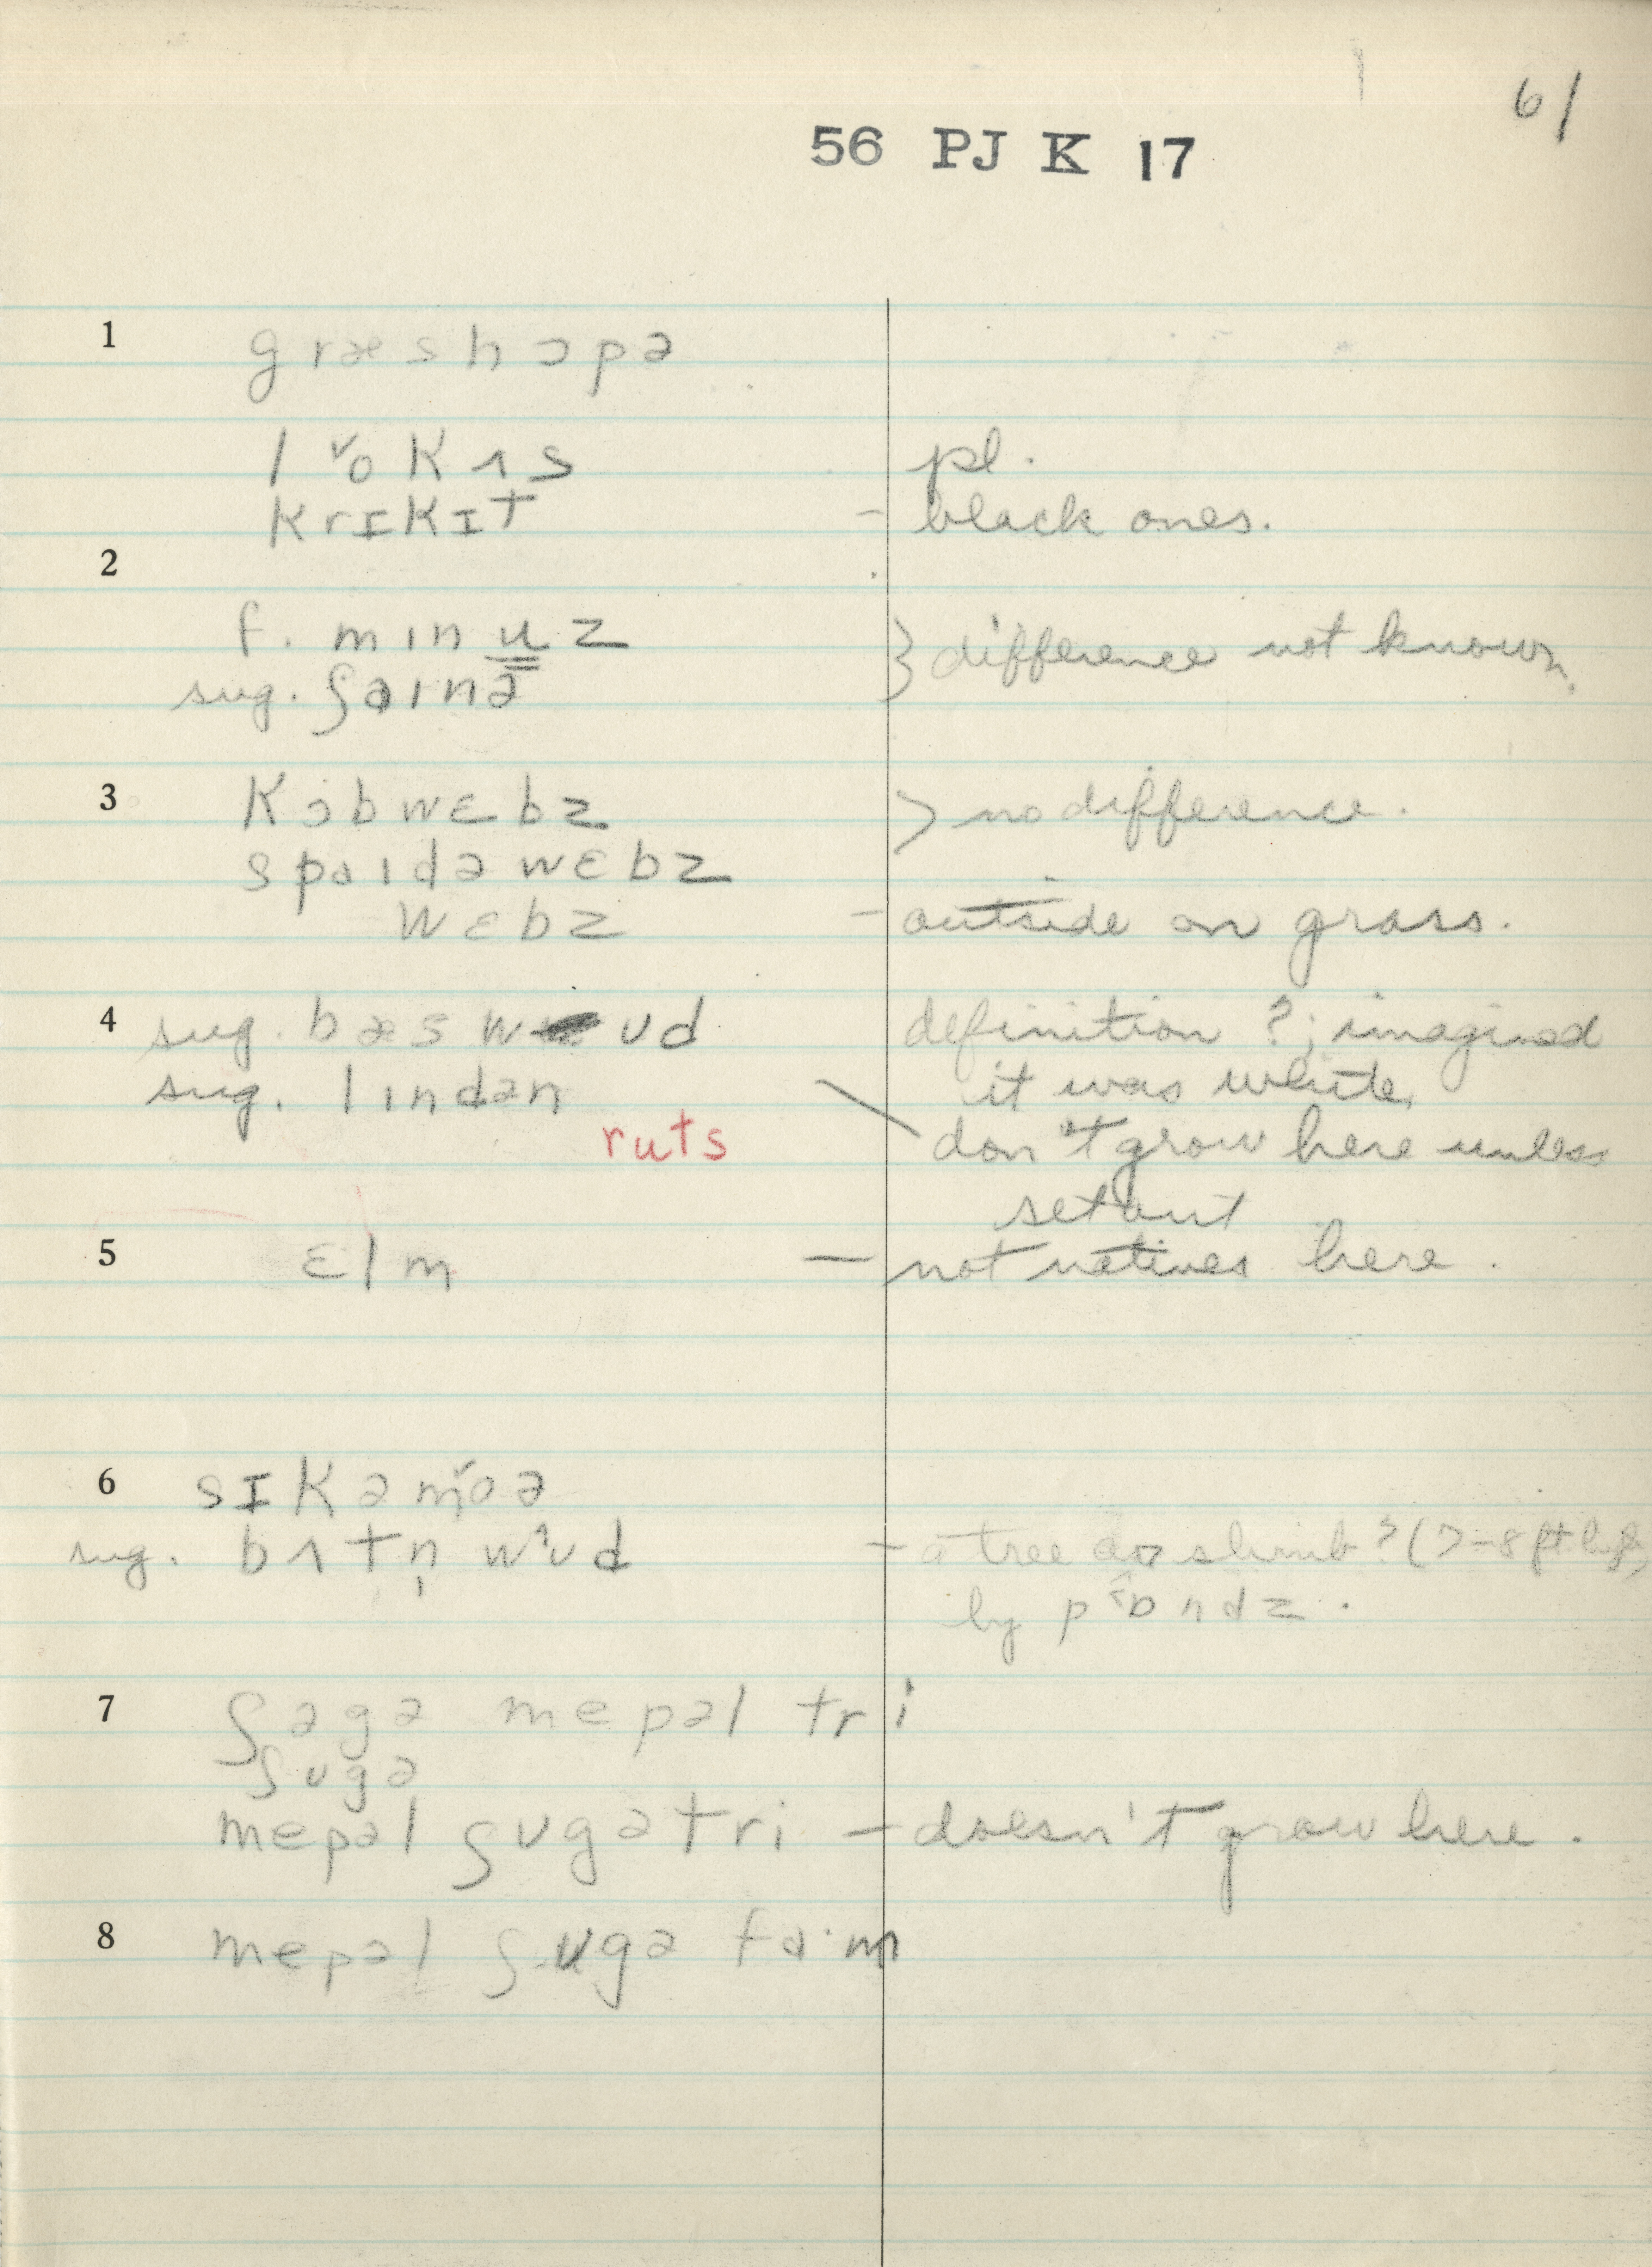 61
56 PJ K 17
1 græshɔpə
lˇokʌs pl.
krɪkɪt – black ones.
2
f. mɪnu̳z } difference not known.
sug. ʃaɪnə
3 kɔbwɛbz > no difference.
spaɪdəwɛbz
wɛbz – outside on grass.
4 sug. bæswʊd definition ?; imagined
sug. lɪndən it was white.
ruts don't grow here unless
set out
5 ɛlm – not natives here.
6 sɪkəmˇoə
sug. bʌtn̩wˆʊd – a tree or shrub? (7–8 ft high)
by p˂ɒndz.
7 ʃəgə mepəl tri
ʃʊgə
mepəl ʃʊgətri – doesn't grow here.
8 mepəl ʃʊgə fa·m